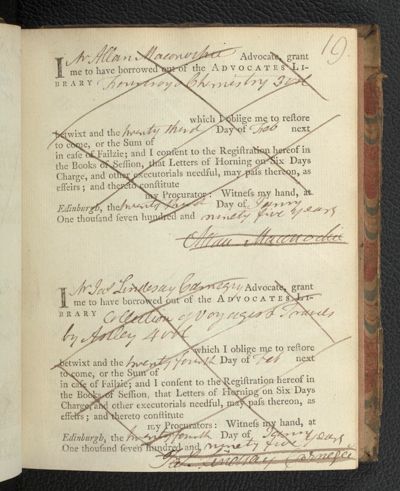 19.
I Mr Allan Maconochie Advocate, grant
me to have borrowed out of the ADVOCATES LI-
BRARY Fourcroy's Chemistry 3 vol
which I oblige me to reſtore
betwixt and the twenty third Day of Feb next
to come, or the Sum of
in caſe of Failzie; and I conſent to the Regiſtration hereof in
the Books of Seſſion, that Letters of Horning on Six Days
Charge, and other executorials needful, may paſs thereon, as
effeirs; and thereto conſtitute
my Procurator: Witneſs my hand, at
Edinburgh, the twenty Day of Janry
One thouſand ſeven hundred and ninety five years
Allan Maconochie
I Mr Jas Lindesay Carnegy Advocate, grant
me to have borrowed out of the ADVOCATES LI-
BRARY Collection of Voyages & Travels
by Astley 4 vol
which I oblige me to reſtore
betwixt and the twenty fourth Day of Feb next
to come, or the Sum of
in caſe of Failzie; and I conſent to the Regiſtration hereof in
the Books of Seſſion, that Letters of Horning on Six Days
Charge, and other executorials needful, may paſs thereon, as
effeirs; and thereto conſtitute
my Procurators: Witneſs my hand, at
Edinburgh, the twenty fourth Day of Janry
One thouſand ſeven hundred and ninety five years
Jas Lindsay Carnegie